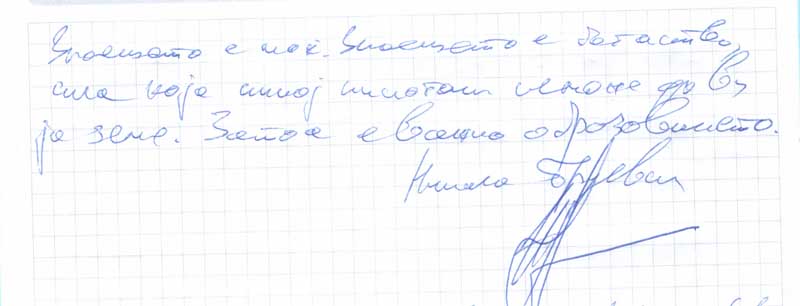 Знаењето е моќ. Знаењето е богатство,
сила која никој никогаш неможе да ви
ја земе. Затоа е важно образованието.
Никола